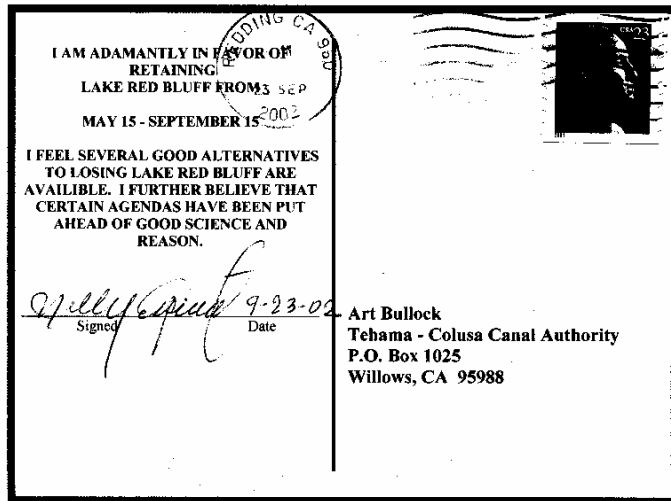 I AM ADAMANTLY IN FAVOR OF
RETAINING
LAKE RED BLUFF FROM
MAY 15 - SEPTEMBER 15
I FEEL SEVERAL GOOD ALTERNATIVES
TO LOSING LAKE RED BLUFF ARE
AVAILIBLE. I FURTHER BELIEVE THAT
CERTAIN AGENDAS HAVE BEEN PUT
AHEAD OF GOOD SCIENCE AND
REASON.
9-23-02
Signed Date
REDDING CA
23 SEP
2002
USA 23
Art Bullock
Tehama - Colusa Canal Authority
P.O. Box 1025
Willows, CA 95988